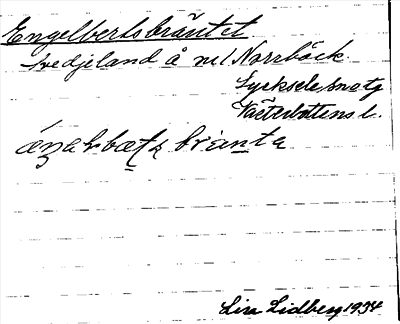 Engelbertsbräntet
Svedjeland å n:l Norrbäck
Lycksele snstg
Västerbottens l.
bränta
Lisa Lidberg 1934